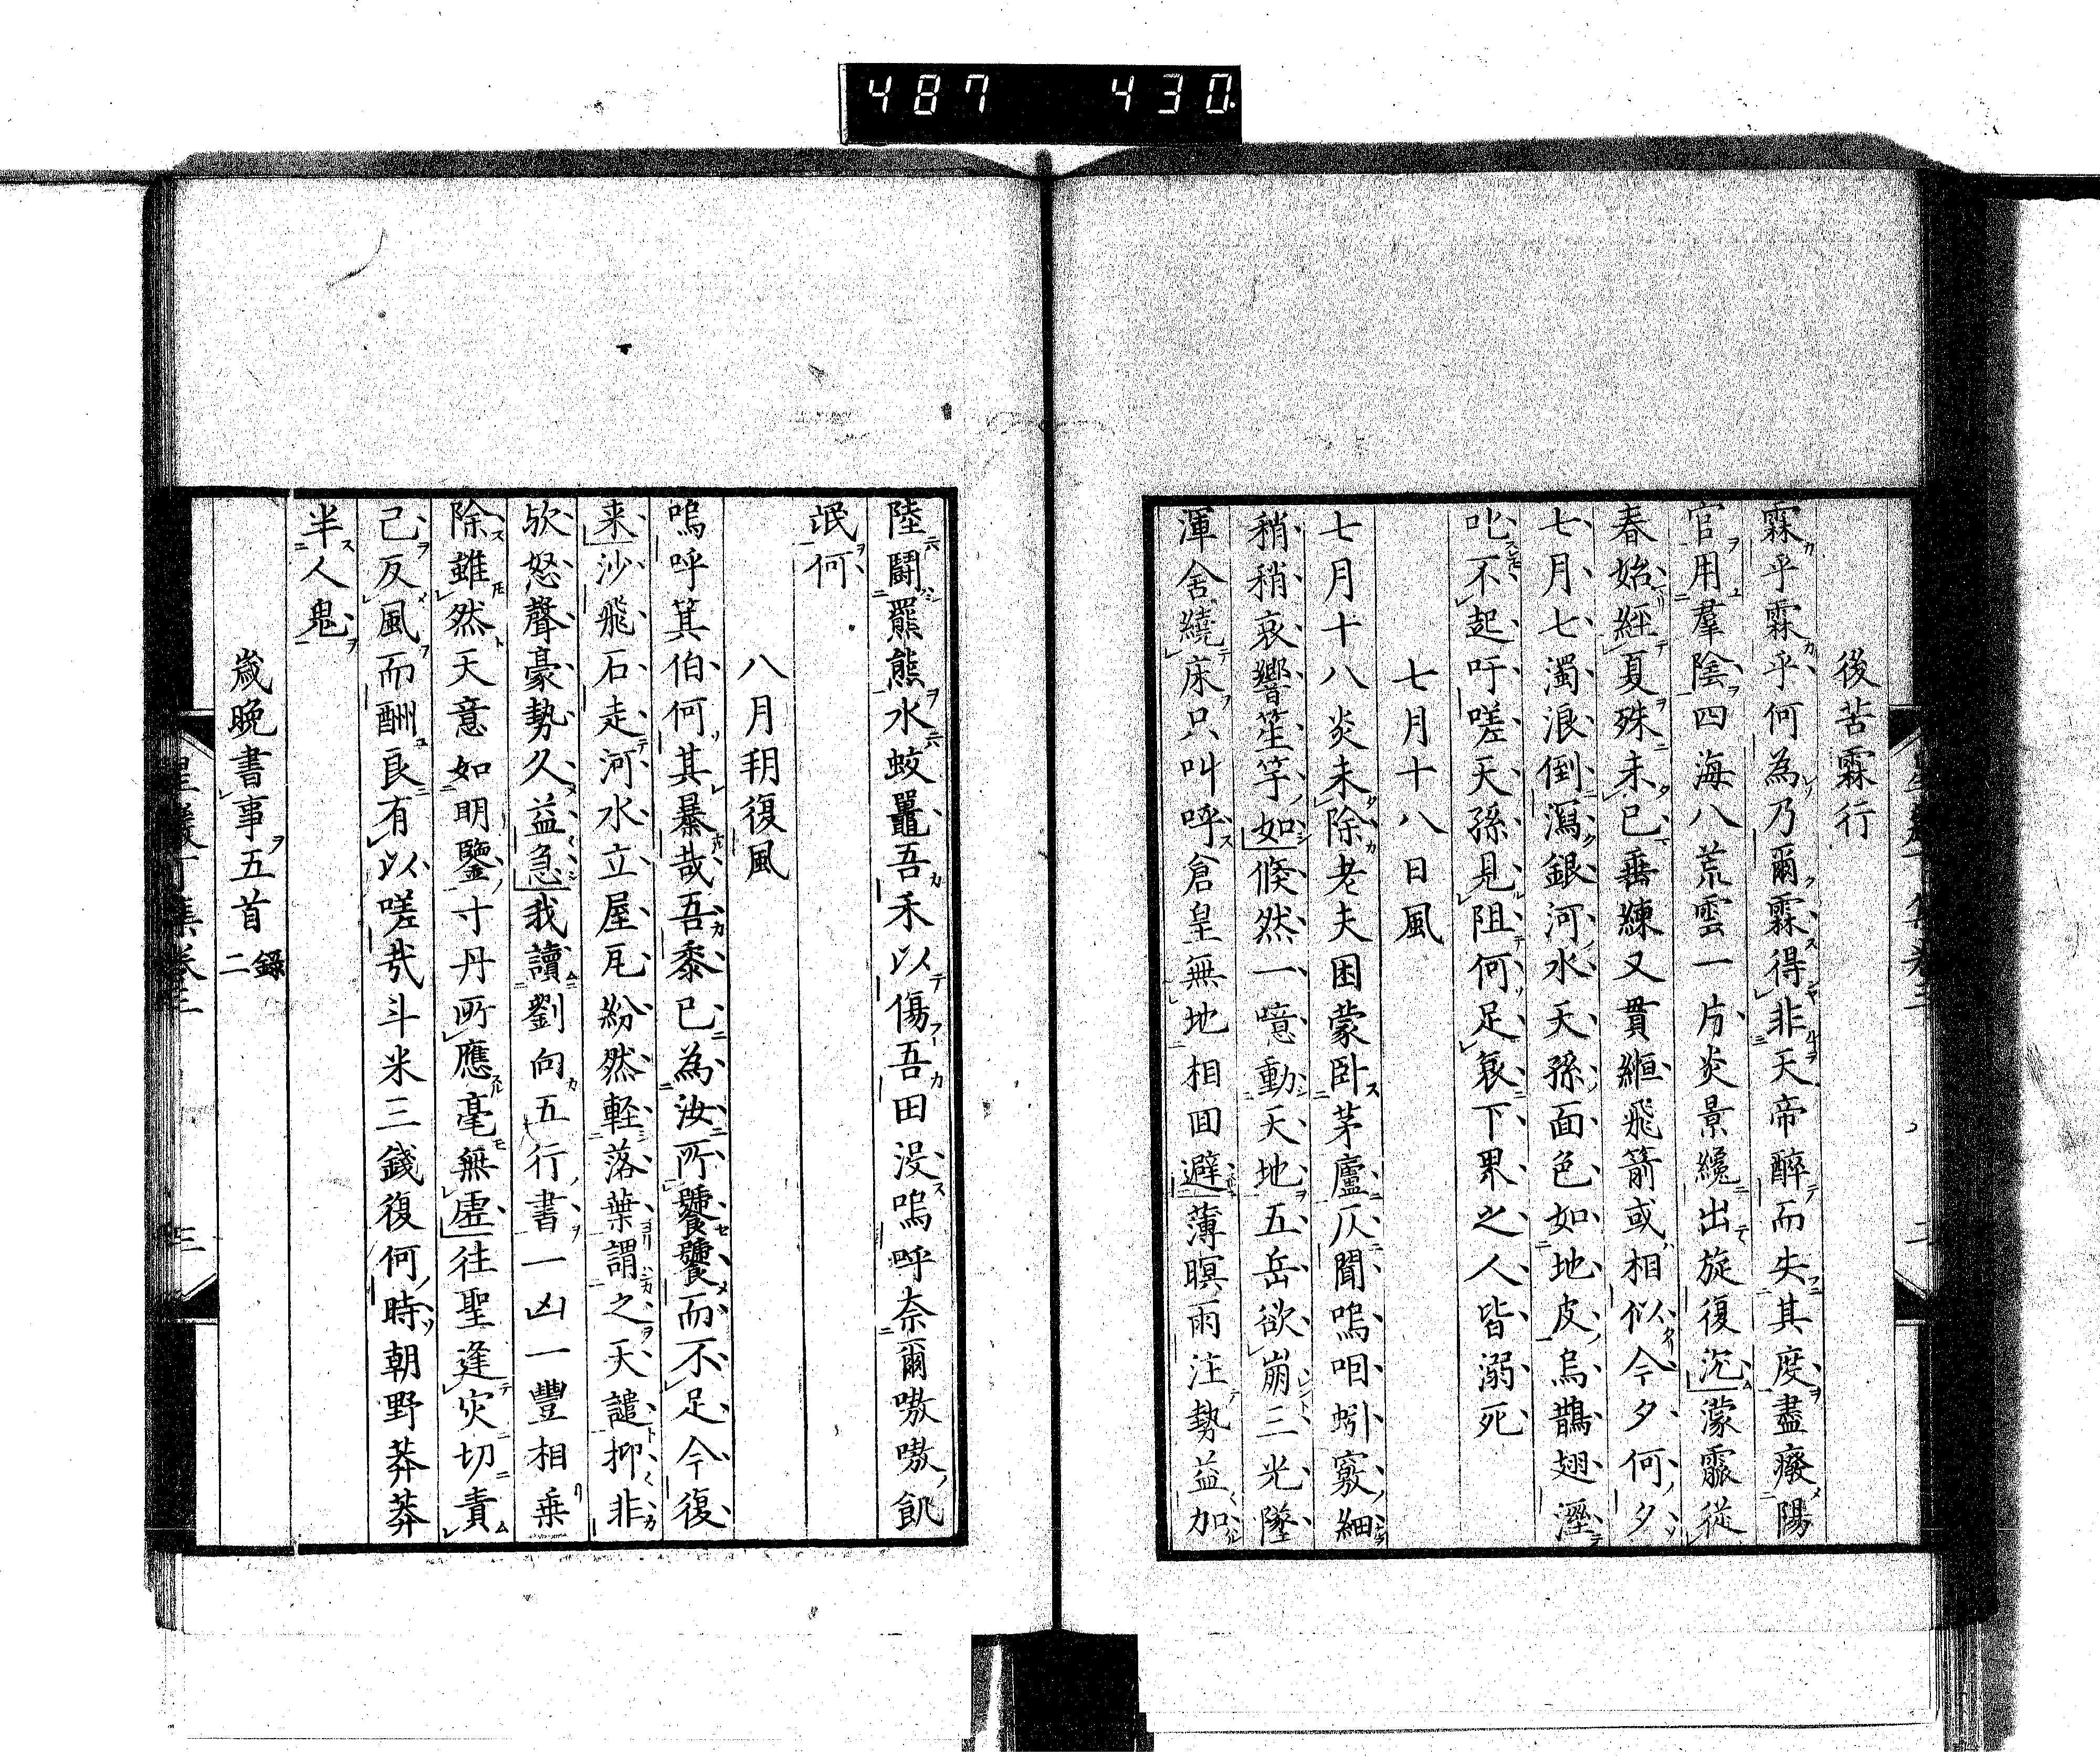 487 430
後苦霖行
霖乎霖乎何為乃爾霖得非天帝醉而失其度盡癈陽
官用羣陰四海八荒雲一片炎景纔出旋復沱濛霢從
春始經夏殊未已垂練又貫縆飛箭或相似今夕何夕
七月七濁浪倒瀉銀河水天孫面色如地皮烏鵲翅溼
叱不起吁嗟天孫見阻何足哀下界之人皆溺死
七月十八日風
七月十八炎未除老夫困蒙卧茅廬仄聞嗚咽蚓竅細
稍稍哀響笙竽如倏然一噫動天地五岳欲崩三光墜
渾舍繞床只叫呼倉皇無地相回避薄暝雨注勢益加
陸鬪羆熊水蛟鼉吾禾以傷吾田沒嗚呼奈爾嗷嗷飢
氓何
八月朔復風
嗚呼箕伯何其暴哉吾黍已為汝所饕饕而不足今復
来沙飛石走河水立屋瓦紛然軽落葉謂之天譴抑非
欤怒聲豪勢久益急我讀劉向五行書一凶一豐相乗
除雖然天意如明鑒寸丹所應毫無虚往聖逢灾切責
己反風而酬良有以嗟哉斗米三錢復何時朝野莽莽
半人鬼
歳晩書事五首 録二